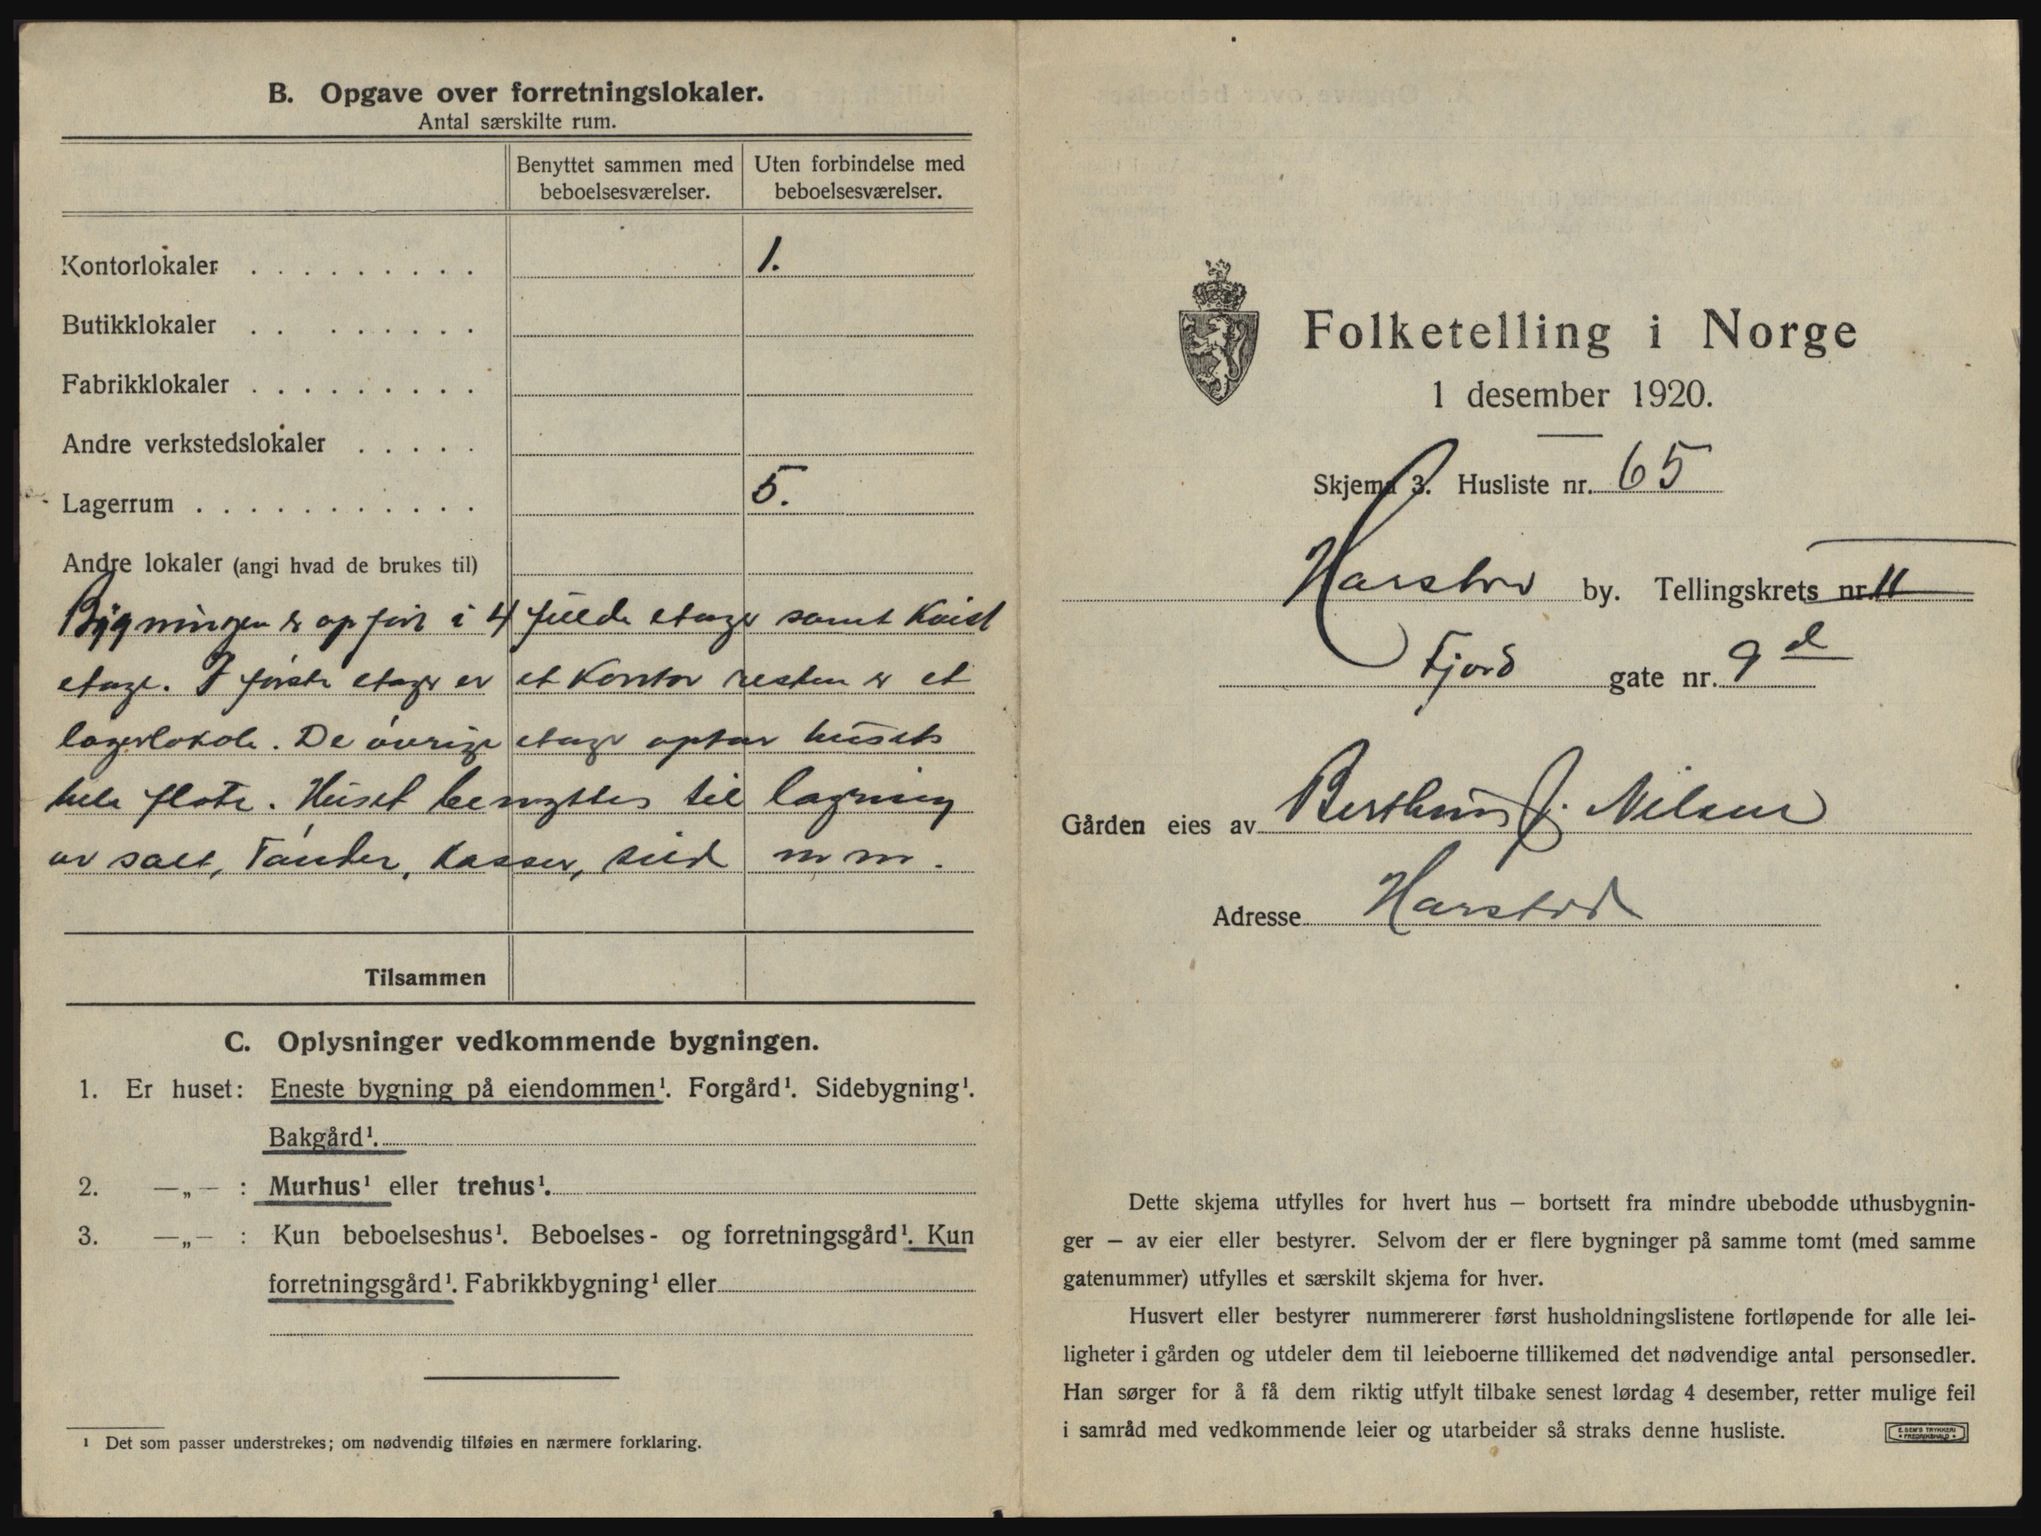 B. Opgave over forretningslokaler.
Antal særskilte rum.
Benyttet sammen med beboelsesværelser.
Uten forbindelse med beboelsesværelser.
Kontorlokaler . . . . . . . . . 1.
Butikklokaler . . . . . . . . .
Fabrikklokaler . . . . . . . . .
Andre verkstedslokaler . . . . .
Lagerrum . . . . . . . . . . . 5.
Andre lokaler (angi hvad de brukes til)
Bygningen er opført i 4 fulde etager samt Kvist
etage. I første etage er et Kontor resten er et
lagerlokale. De øvrige etager optar husets
hele flate. Huset benyttes til lagring
av salt, Tønder, Kasser, sild m m.
Tilsammen
C. Oplysninger vedkommende bygningen.
1. Er huset: Eneste bygning på eiendommen¹. Forgård¹. Sidebygning¹.
Bakgård¹.
2. —„— : Murhus¹ eller trehus¹.
3. —„— : Kun beboelseshus¹. Beboelses- og forretningsgård¹. Kun
forretningsgård¹. Fabrikkbygning¹ eller
¹ Det som passer understrekes; om nødvendig tilføies en nærmere forklaring.
Folketelling i Norge
1 desember 1920.
Skjema 3. Husliste nr. 65
Harstad by. Tellingskrets nr. 11
Fjord gate nr. 9 d
Gården eies av Berthus J. Nilsen
Adresse Harstad
Dette skjema utfylles for hvert hus – bortsett fra mindre ubebodde uthusbygnin-
ger – av eier eller bestyrer. Selvom der er flere bygninger på samme tomt (med samme
gatenummer) utfylles et særskilt skjema for hver.
Husvert eller bestyrer nummererer først husholdningslistene fortløpende for alle lei-
ligheter i gården og utdeler dem til leieboerne tillikemed det nødvendige antal personsedler.
Han sørger for å få dem riktig utfylt tilbake senest lørdag 4 desember, retter mulige feil
i samråd med vedkommende leier og utarbeider så straks denne husliste.
E. SEM'S TRYKKERI
FREDRIKSHALD